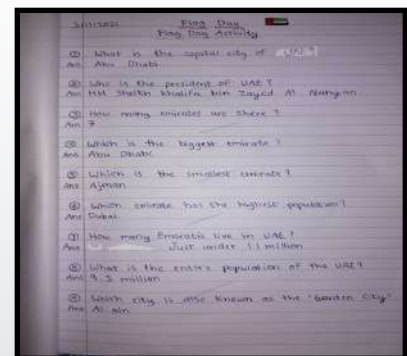 3/11/2021 Flag Day
Flag Day Activity
① What is the capital city of UAE?
Ans Abu Dhabi
② Who is the president of UAE?
Ans HH Sheikh Khalifa bin Zayed Al Nahyan
③ How many emirates are there?
Ans 7
④ Which is the biggest emirate?
Ans Abu Dhabi
⑤ Which is the smallest emirate?
Ans Ajman
⑥ Which emirate has the highest population?
Ans Dubai
⑦ How many Emiratis live in UAE?
Ans Just under 1.1 million
⑧ What is the entire population of the UAE?
Ans 9.5 million
⑨ Which city is also known as the 'Garden City'
Ans Al ain